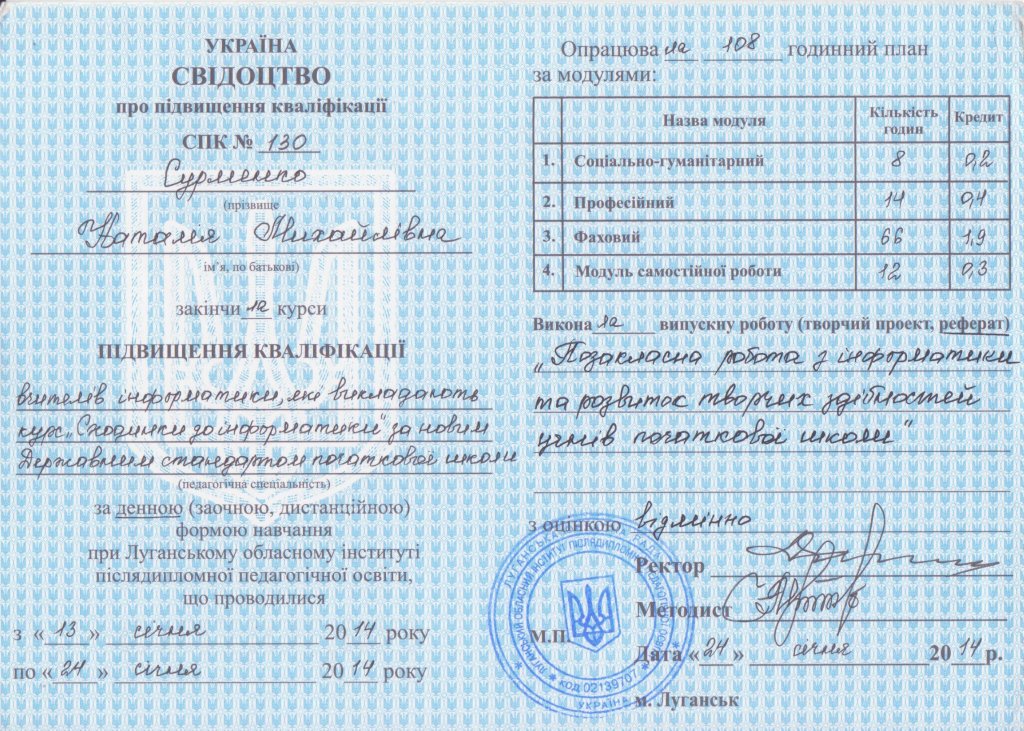 УКРАЇНА
СВІДОЦТВО
про підвищення кваліфікації
СПК № 130
Сурменко
(прізвище
Наталія Михайлівна
ім'я, по батькові)
закінчила курси
ПІДВИЩЕННЯ КВАЛІФІКАЦІЇ
вчителів інформатики, які викладають
курс „Сходинки до інформатики" за новим
Державним стандартом початкової школи
(педагогічна спеціальність)
за денною (заочною, дистанційною)
формою навчання
при Луганському обласному інституті
післядипломної педагогічної освіти,
що проводилися
з «13» січня 2014 року
по «24» січня 2014 року
Опрацювала 108 годинний план
за модулями:
Назва модуля Кількість годин Кредит
1. Соціально-гуманітарний 8 0,2
2. Професійний 14 0,4
3. Фаховий 66 1,9
4. Модуль самостійної роботи 12 0,3
Виконала випускну роботу (творчий проект, реферат)
„Позакласна робота з інформатики
та розвиток творчих здібностей
учнів початкової школи"
з оцінкою відмінно
Ректор
Методист
М.П.
Дата «24» січня 2014 р.
м. Луганськ
код 02139707
УКРАЇНА